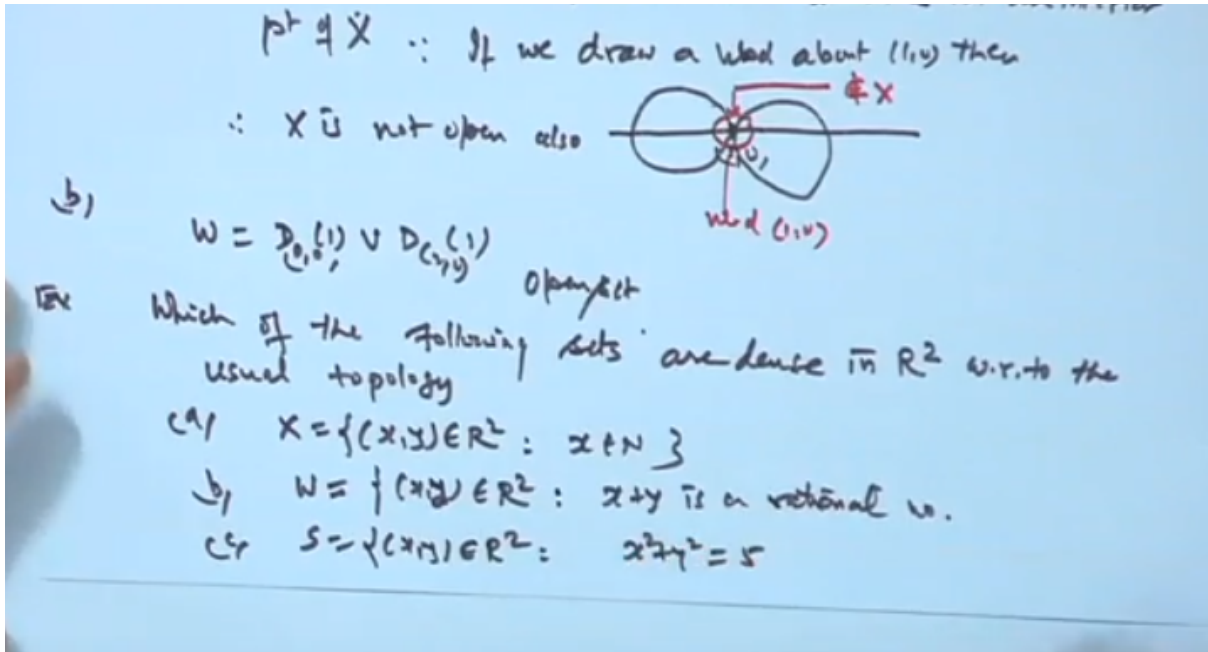 pt of X ∵ If we draw a nbd about (1,0) then
∴ X is not open also
∉ X
nbd (1,0)
b)
W = D(0,0)(1) ∪ D(2,0)(1)
Open set
Ex Which of the following sets are dense in R² w.r.to the
usual topology
(a) X = {(x,y) ∈ R² : x ∈ N }
b) W = { (x,y) ∈ R² : x+y is a rational no.
(c) S = {(x,y) ∈ R² : x²+y² = 5